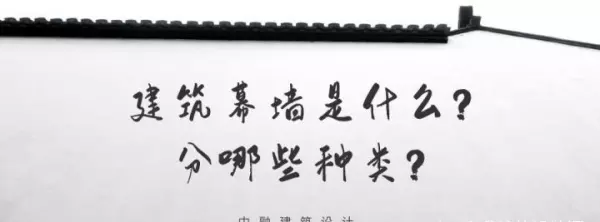 建筑幕墙是什么?
分哪些种类?
中融建筑设计